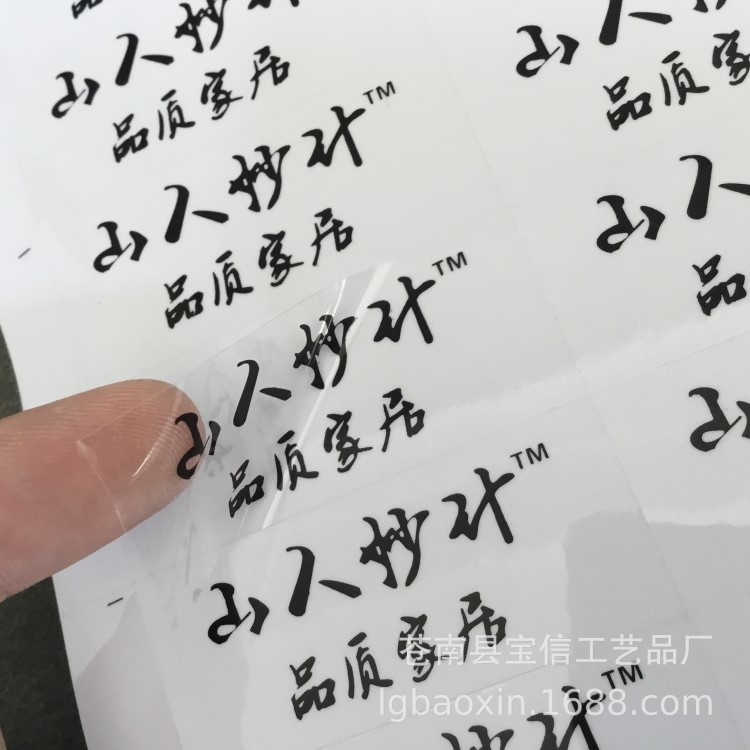 山人妙计
山人妙计™
品质家居
山人妙计™
品质家居
山人妙计™
品质家居
山人妙计™
品质家居
计™
山人
品质家
山人
品
山
苍南县宝信工艺品厂
lgbaoxin.1688.com